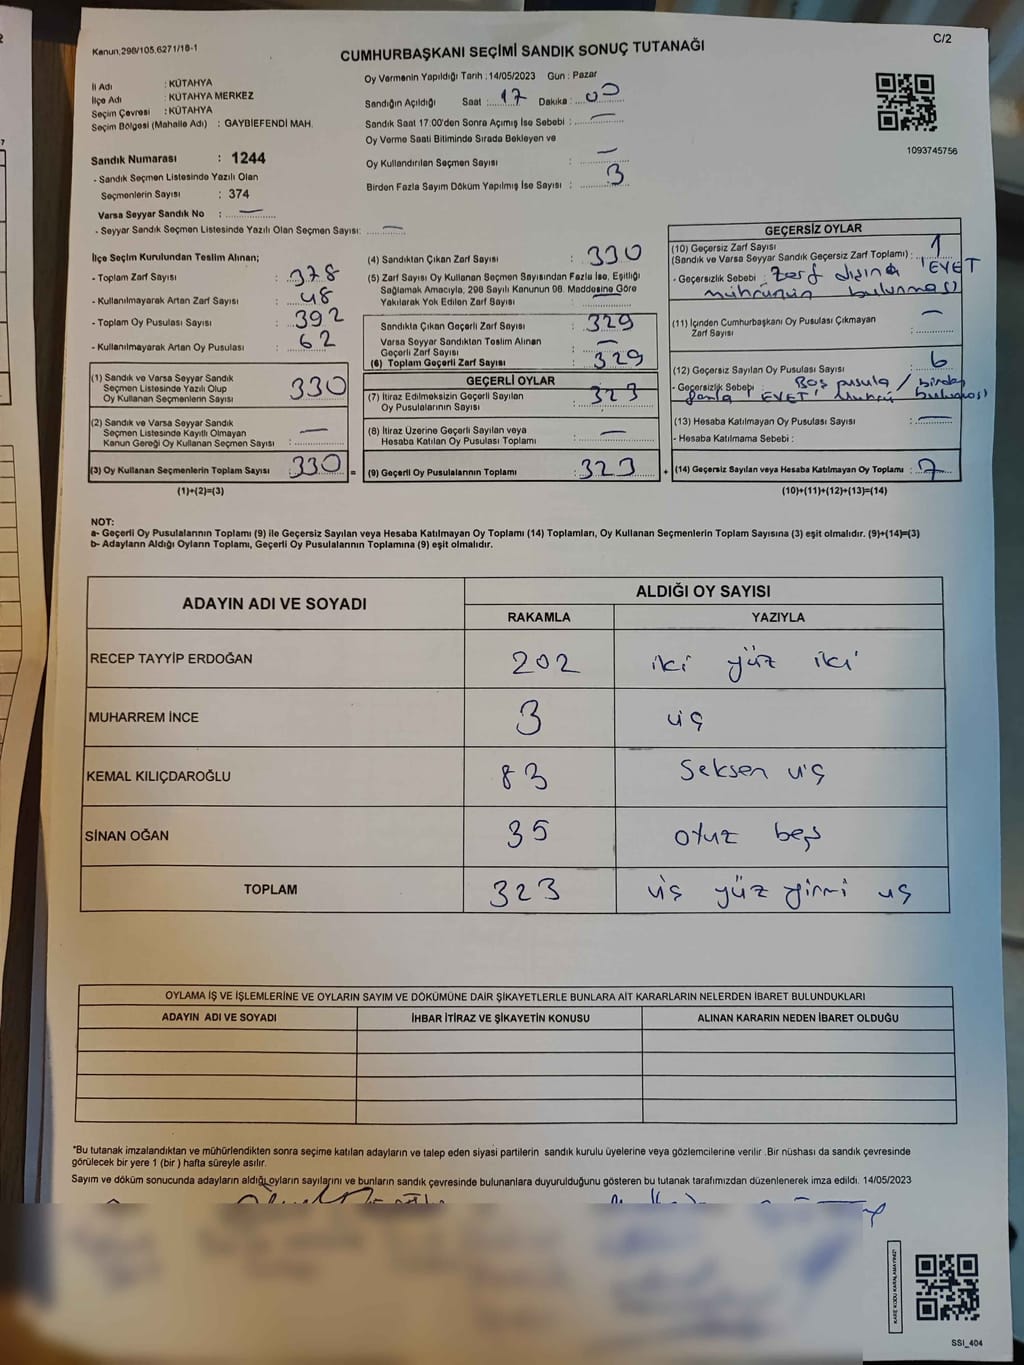 Kanun.298/105,6271/18-1
C/2
CUMHURBAŞKANI SEÇİMİ SANDIK SONUÇ TUTANAĞI
İl Adı : KÜTAHYA
İlçe Adı : KÜTAHYA MERKEZ
Seçim Çevresi : KÜTAHYA
Seçim Bölgesi (Mahalle Adı) : GAYBİEFENDİ MAH.
Oy Vermenin Yapıldığı Tarih : 14/05/2023 Gün : Pazar
Sandığın Açıldığı Saat : 17 Dakika : 00
Sandık Saat 17:00'den Sonra Açımış İse Sebebi : —
Oy Verme Saati Bitiminde Sırada Bekleyen ve
Oy Kullandırılan Seçmen Sayısı : —
Birden Fazla Sayım Döküm Yapılmış İse Sayısı : 3
1093745756
Sandık Numarası : 1244
- Sandık Seçmen Listesinde Yazılı Olan
Seçmenlerin Sayısı : 374
Varsa Seyyar Sandık No : —
- Seyyar Sandık Seçmen Listesinde Yazılı Olan Seçmen Sayısı: —
İlçe Seçim Kurulundan Teslim Alınan;
- Toplam Zarf Sayısı : 378
- Kullanılmayarak Artan Zarf Sayısı : 48
- Toplam Oy Pusulası Sayısı : 392
- Kullanılmayarak Artan Oy Pusulası : 62
(1) Sandık ve Varsa Seyyar Sandık
Seçmen Listesinde Yazılı Olup
Oy Kullanan Seçmenlerin Sayısı : 330
(2) Sandık ve Varsa Seyyar Sandık
Seçmen Listesinde Kayıtlı Olmayan
Kanun Gereği Oy Kullanan Seçmen Sayısı : —
(3) Oy Kullanan Seçmenlerin Toplam Sayısı : 330 =
(1)+(2)=(3)
(4) Sandıktan Çıkan Zarf Sayısı : 330
(5) Zarf Sayısı Oy Kullanan Seçmen Sayısından Fazla İse, Eşitliği
Sağlamak Amacıyla, 298 Sayılı Kanunun 98. Maddesine Göre
Yakılarak Yok Edilen Zarf Sayısı : —
Sandıkta Çıkan Geçerli Zarf Sayısı : 329
Varsa Seyyar Sandıktan Teslim Alınan
Geçerli Zarf Sayısı : —
(6) Toplam Geçerli Zarf Sayısı : 329
GEÇERLİ OYLAR
(7) İtiraz Edilmeksizin Geçerli Sayılan
Oy Pusulalarının Sayısı : 323
(8) İtiraz Üzerine Geçerli Sayılan veya
Hesaba Katılan Oy Pusulası Toplamı : —
(9) Geçerli Oy Pusulalarının Toplamı : 323 +
GEÇERSİZ OYLAR
(10) Geçersiz Zarf Sayısı
(Sandık ve Varsa Seyyar Sandık Geçersiz Zarf Toplamı) : 1
- Geçersizlik Sebebi : Zarf dışında 'EVET
mührünün bulunması
(11) İçinden Cumhurbaşkanı Oy Pusulası Çıkmayan
Zarf Sayısı : —
(12) Geçersiz Sayılan Oy Pusulası Sayısı : 6
- Geçersizlik Sebebi : Boş pusula / birden
fazla 'EVET' mührü bulunması
(13) Hesaba Katılmayan Oy Pusulası Sayısı : —
- Hesaba Katılmama Sebebi :
(14) Geçersiz Sayılan veya Hesaba Katılmayan Oy Toplamı : 7
(10)+(11)+(12)+(13)=(14)
NOT:
a- Geçerli Oy Pusulalarının Toplamı (9) ile Geçersiz Sayılan veya Hesaba Katılmayan Oy Toplamı (14) Toplamları, Oy Kullanan Seçmenlerin Toplam Sayısına (3) eşit olmalıdır. (9)+(14)=(3)
b- Adayların Aldığı Oyların Toplamı, Geçerli Oy Pusulalarının Toplamına (9) eşit olmalıdır.
ADAYIN ADI VE SOYADI
ALDIĞI OY SAYISI
RAKAMLA YAZIYLA
RECEP TAYYİP ERDOĞAN 202 iki yüz iki
MUHARREM İNCE 3 üç
KEMAL KILIÇDAROĞLU 83 Seksen üç
SİNAN OĞAN 35 otuz beş
TOPLAM 323 üç yüz yirmi üç
OYLAMA İŞ VE İŞLEMLERİNE VE OYLARIN SAYIM VE DÖKÜMÜNE DAİR ŞİKAYETLERLE BUNLARA AİT KARARLARIN NELERDEN İBARET BULUNDUKLARI
ADAYIN ADI VE SOYADI İHBAR İTİRAZ VE ŞİKAYETİN KONUSU ALINAN KARARIN NEDEN İBARET OLDUĞU
*Bu tutanak imzalandıktan ve mühürlendikten sonra seçime katılan adayların ve talep eden siyasi partilerin sandık kurulu üyelerine veya gözlemcilerine verilir .Bir nüshası da sandık çevresinde
görülecek bir yere 1 (bir ) hafta süreyle asılır.
Sayım ve döküm sonucunda adayların aldığı oyların sayılarını ve bunların sandık çevresinde bulunanlara duyurulduğunu gösteren bu tutanak tarafımızdan düzenlenerek imza edildi. 14/05/2023
KARE KODU KARALAMAYINIZ!
SSI_404